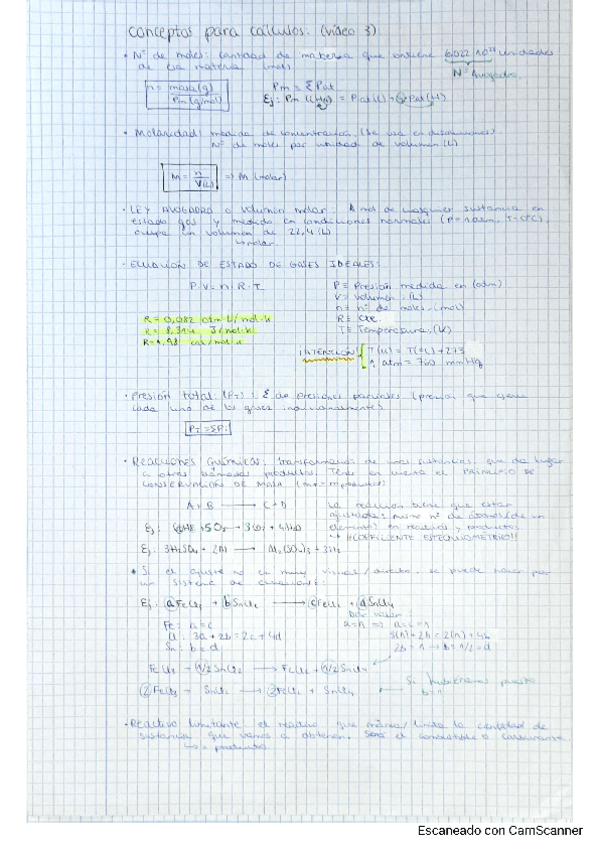 Conceptos para cálculos. (vídeo 3)
• Nº de moles: Cantidad de materia que contiene 6,022·10²³ unidades
de esa materia (mol)
Nº Avogadro
n = masa(g) / Pm(g/mol)
Pm = Σ Pat
Ej: Pm (CH₄) = Pat(C) + 4·Pat(H)
• Molaridad: medida de concentración. (Se usa en disoluciones)
Nº de moles por unidad de volumen (L)
M = n / V(L) => M (molar)
• LEY AVOGADRO o volumen molar: 1 mol de cualquier sustancia en
estado gas y medido en condiciones normales (P=1atm, T=0ºC),
ocupa un volumen de 22,4 (L)
↳ molar.
• ECUACIÓN DE ESTADO DE GASES IDEALES:
P·V = n·R·T
P ≡ Presión medida en (atm)
V ≡ Volumen. (L)
n ≡ nº de moles. (mol)
R ≡ Cte.
T ≡ Temperatura. (K)
R = 0,082 atm·L/mol·K
R = 8,314 J/mol·K
R = 1,98 cal/mol·K
¡ATENCIÓN! T(K) = T(ºC) + 273
1 atm = 760 mmHg
• Presión total: (PT): Σ de presiones parciales (presión que ejerce
cada uno de los gases individualmente)
PT = ΣPi
• Reacciones Químicas: transformación de unas sustancias, que da lugar
a otras llamadas productos. Tener en cuenta el PRINCIPIO DE
CONSERVACIÓN DE MASA
A + B → C + D
La reacción tiene que estar
ajustada: mismo nº de átomos (de un
elemento) en reactivos y productos
↳ ¡¡COEFICIENTE ESTEQUIOMÉTRICO!!
Ej: + 5O₂ → 3CO₂ + 4H₂O
Ej: 3H₂SO₄ + 2Al → Al₂(SO₄)₃ + 3H₂
• Si el ajuste no es muy visual/directo, se puede hacer por
un sistema de ecuaciones:
Ej: aFeCl₃ + bSnCl₂ → cFeCl₂ + dSnCl₄
Fe: a = c
Cl: 3a + 2b = 2c + 4d
Sn: b = d
a=1 => a=c=1
3(1) + 2b = 2(1) + 4b
2b = 1 → b = 1/2 = d
FeCl₃ + 1/2 SnCl₂ → FeCl₂ + 1/2 SnCl₄
2FeCl₃ + SnCl₂ → 2FeCl₂ + SnCl₄
Si hubiéramos puesto
b=1
• Reactivo limitante: el reactivo que marca/limita la cantidad de
sustancia que vamos a obtener. Será el combustible o carburante.
↳ = producto.
Escaneado con CamScanner